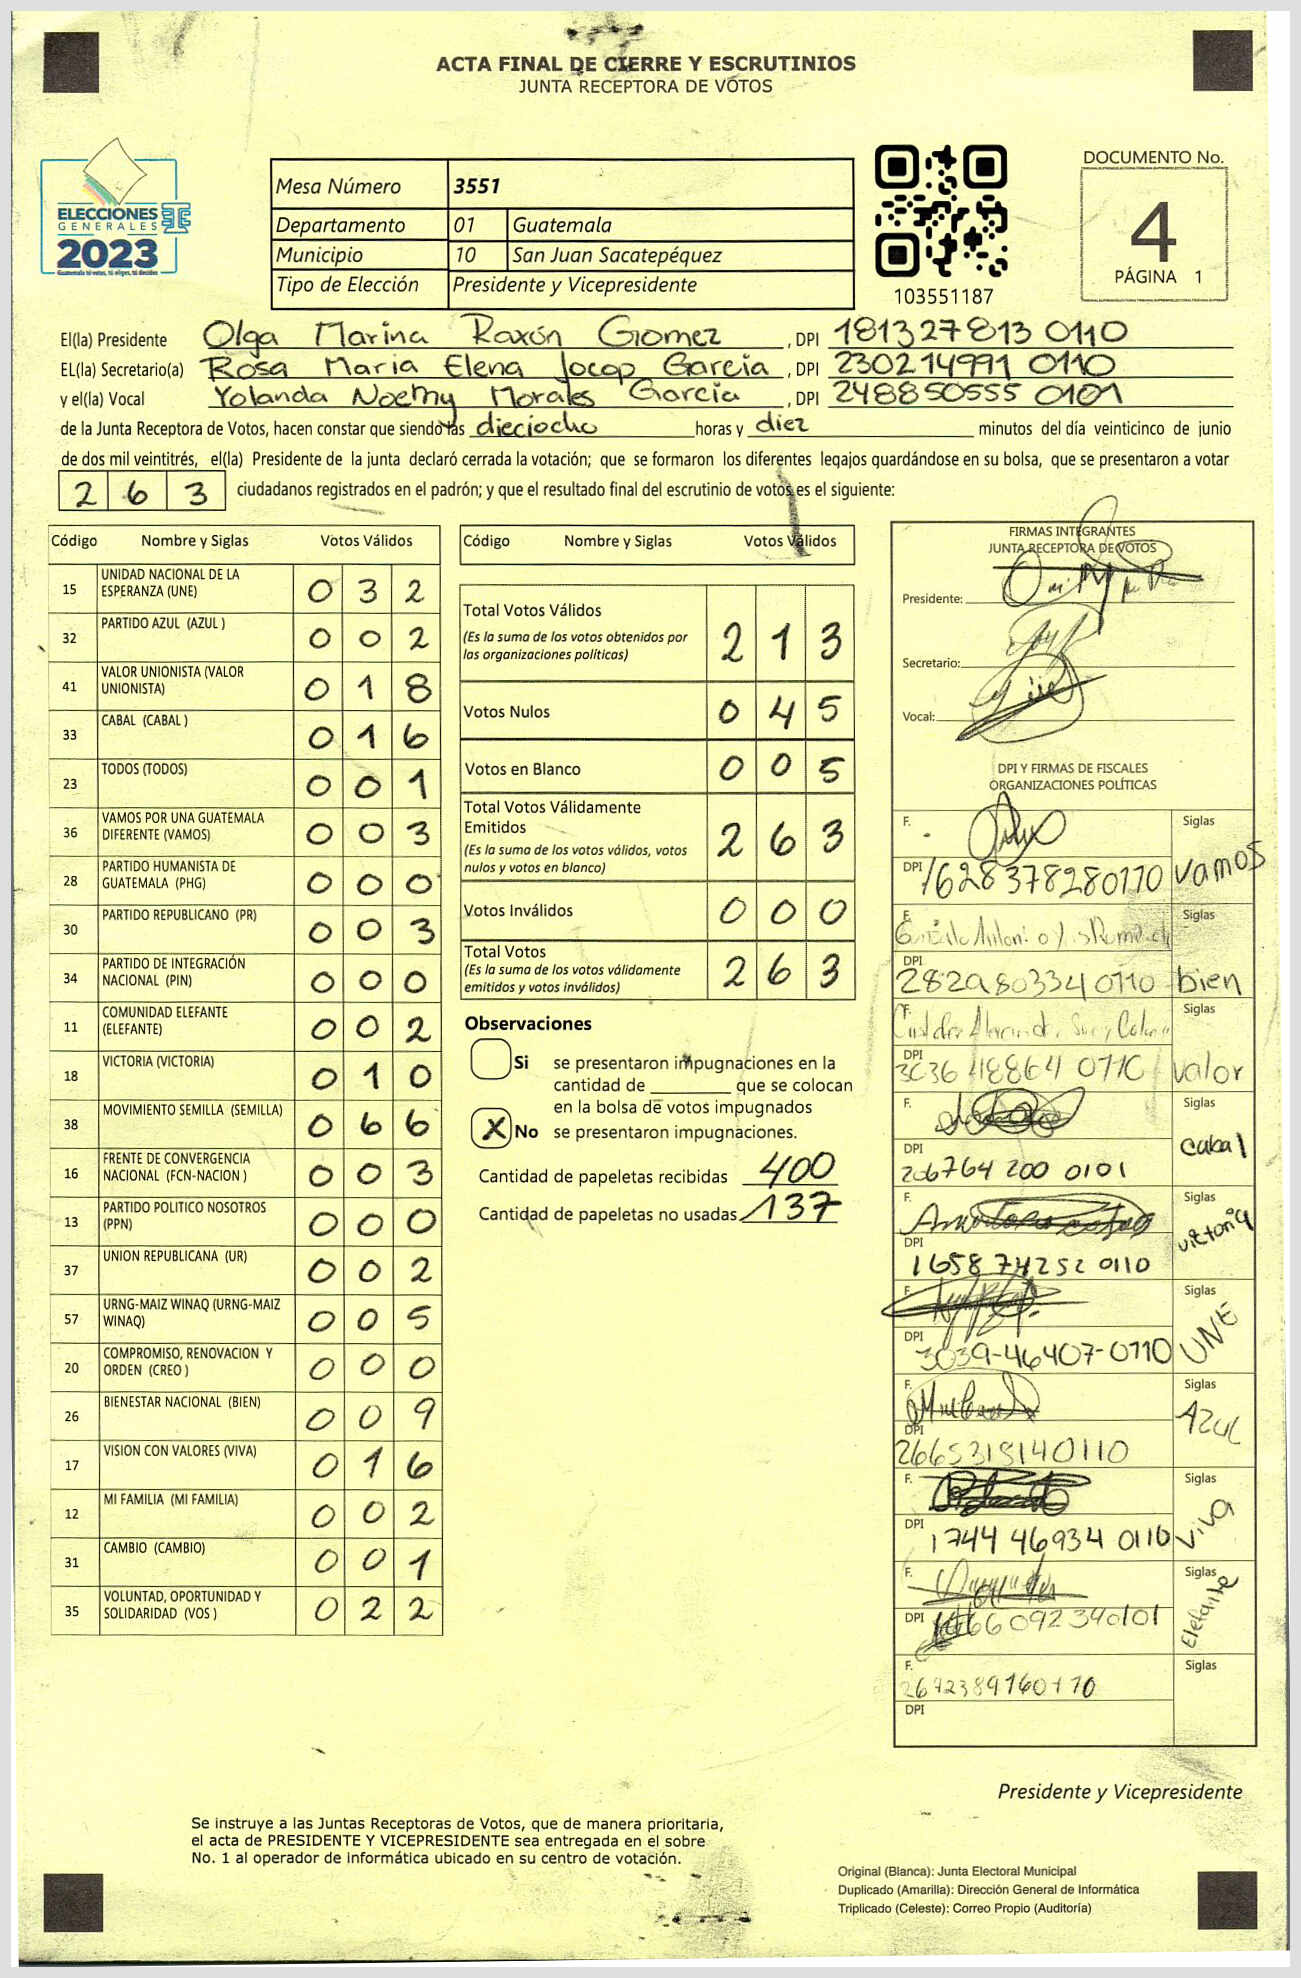 ACTA FINAL DE CIERRE Y ESCRUTINIOS
JUNTA RECEPTORA DE VOTOS
ELECCIONES
GENERALES
2023
Guatemala tú votas, tú eliges, tú decides
Mesa Número 3551
Departamento 01 Guatemala
Municipio 10 San Juan Sacatepéquez
Tipo de Elección Presidente y Vicepresidente
103551187
DOCUMENTO No.
4
PÁGINA 1
El(la) Presidente Olga Marina Raxón Gomez, DPI 181327813 0110
EL(la) Secretario(a) Rosa Maria Elena Jocop Garcia, DPI 230214991 0110
y el(la) Vocal Yolanda Noemy Morales Garcia, DPI 248850555 0101
de la Junta Receptora de Votos, hacen constar que siendo las dieciocho horas y diez minutos del día veinticinco de junio
de dos mil veintitrés, el(la) Presidente de la junta declaró cerrada la votación; que se formaron los diferentes legajos guardándose en su bolsa, que se presentaron a votar
263 ciudadanos registrados en el padrón; y que el resultado final del escrutinio de votos es el siguiente:
Código Nombre y Siglas Votos Válidos
15 UNIDAD NACIONAL DE LA ESPERANZA (UNE) 0 3 2
32 PARTIDO AZUL (AZUL ) 0 0 2
41 VALOR UNIONISTA (VALOR UNIONISTA) 0 1 8
33 CABAL (CABAL ) 0 1 6
23 TODOS (TODOS) 0 0 1
36 VAMOS POR UNA GUATEMALA DIFERENTE (VAMOS) 0 0 3
28 PARTIDO HUMANISTA DE GUATEMALA (PHG) 0 0 0
30 PARTIDO REPUBLICANO (PR) 0 0 3
34 PARTIDO DE INTEGRACIÓN NACIONAL (PIN) 0 0 0
11 COMUNIDAD ELEFANTE (ELEFANTE) 0 0 2
18 VICTORIA (VICTORIA) 0 1 0
38 MOVIMIENTO SEMILLA (SEMILLA) 0 6 6
16 FRENTE DE CONVERGENCIA NACIONAL (FCN-NACION ) 0 0 3
13 PARTIDO POLITICO NOSOTROS (PPN) 0 0 0
37 UNION REPUBLICANA (UR) 0 0 2
57 URNG-MAIZ WINAQ (URNG-MAIZ WINAQ) 0 0 5
20 COMPROMISO, RENOVACION Y ORDEN (CREO ) 0 0 0
26 BIENESTAR NACIONAL (BIEN) 0 0 9
17 VISION CON VALORES (VIVA) 0 1 6
12 MI FAMILIA (MI FAMILIA) 0 0 2
31 CAMBIO (CAMBIO) 0 0 1
35 VOLUNTAD, OPORTUNIDAD Y SOLIDARIDAD (VOS ) 0 2 2
Código Nombre y Siglas Votos Válidos
Total Votos Válidos 2 1 3
(Es la suma de los votos obtenidos por
las organizaciones políticas)
Votos Nulos 0 4 5
Votos en Blanco 0 0 5
Total Votos Válidamente
Emitidos 2 6 3
(Es la suma de los votos válidos, votos
nulos y votos en blanco)
Votos Inválidos 0 0 0
Total Votos 2 6 3
(Es la suma de los votos válidamente
emitidos y votos inválidos)
Observaciones
Si se presentaron impugnaciones en la
cantidad de ________ que se colocan
en la bolsa de votos impugnados
X No se presentaron impugnaciones.
Cantidad de papeletas recibidas 400
Cantidad de papeletas no usadas 137
FIRMAS INTEGRANTES
JUNTA RECEPTORA DE VOTOS
Presidente:
Secretario:
Vocal:
DPI Y FIRMAS DE FISCALES
ORGANIZACIONES POLÍTICAS
F. Siglas
DPI 1628378280110 vamos
F. Siglas
DPI 2829803340110 bien
F. Siglas
DPI 3036 48864 0110 valor
F. Siglas
DPI 206764 200 0101 cabal
F. Siglas
DPI 1658 74252 0110 victoria
F. Siglas
DPI 3039-46407-0110 UNE
F. Siglas
DPI 2665319140110 AZUL
F. Siglas
DPI 1744 46934 0110 viva
F. Siglas
DPI 66092340101 Elefante
F. 2692389160110 Siglas
DPI
Presidente y Vicepresidente
Se instruye a las Juntas Receptoras de Votos, que de manera prioritaria,
el acta de PRESIDENTE Y VICEPRESIDENTE sea entregada en el sobre
No. 1 al operador de informática ubicado en su centro de votación.
Original (Blanca): Junta Electoral Municipal
Duplicado (Amarilla): Dirección General de Informática
Triplicado (Celeste): Correo Propio (Auditoría)